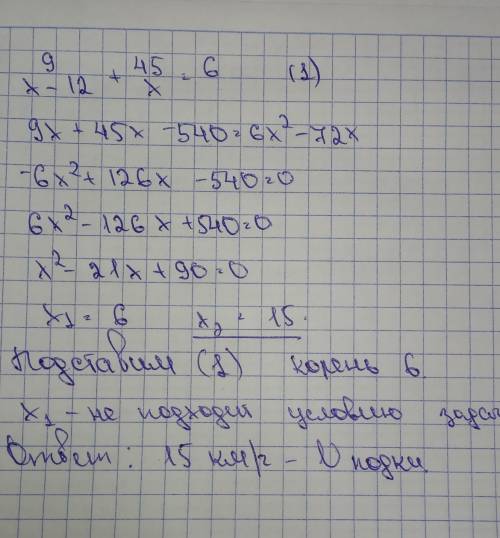 9/(x-12) + 45/x = 6 (1)
9x + 45x - 540 = 6x² - 72x
-6x² + 126x - 540 = 0
6x² - 126x + 540 = 0
x² - 21x + 90 = 0
x₁ = 6 x₂ = 15.
Подставим (1) корень 6.
x₁ - не подходит условию
Ответ: 15 км/г - V лодки.